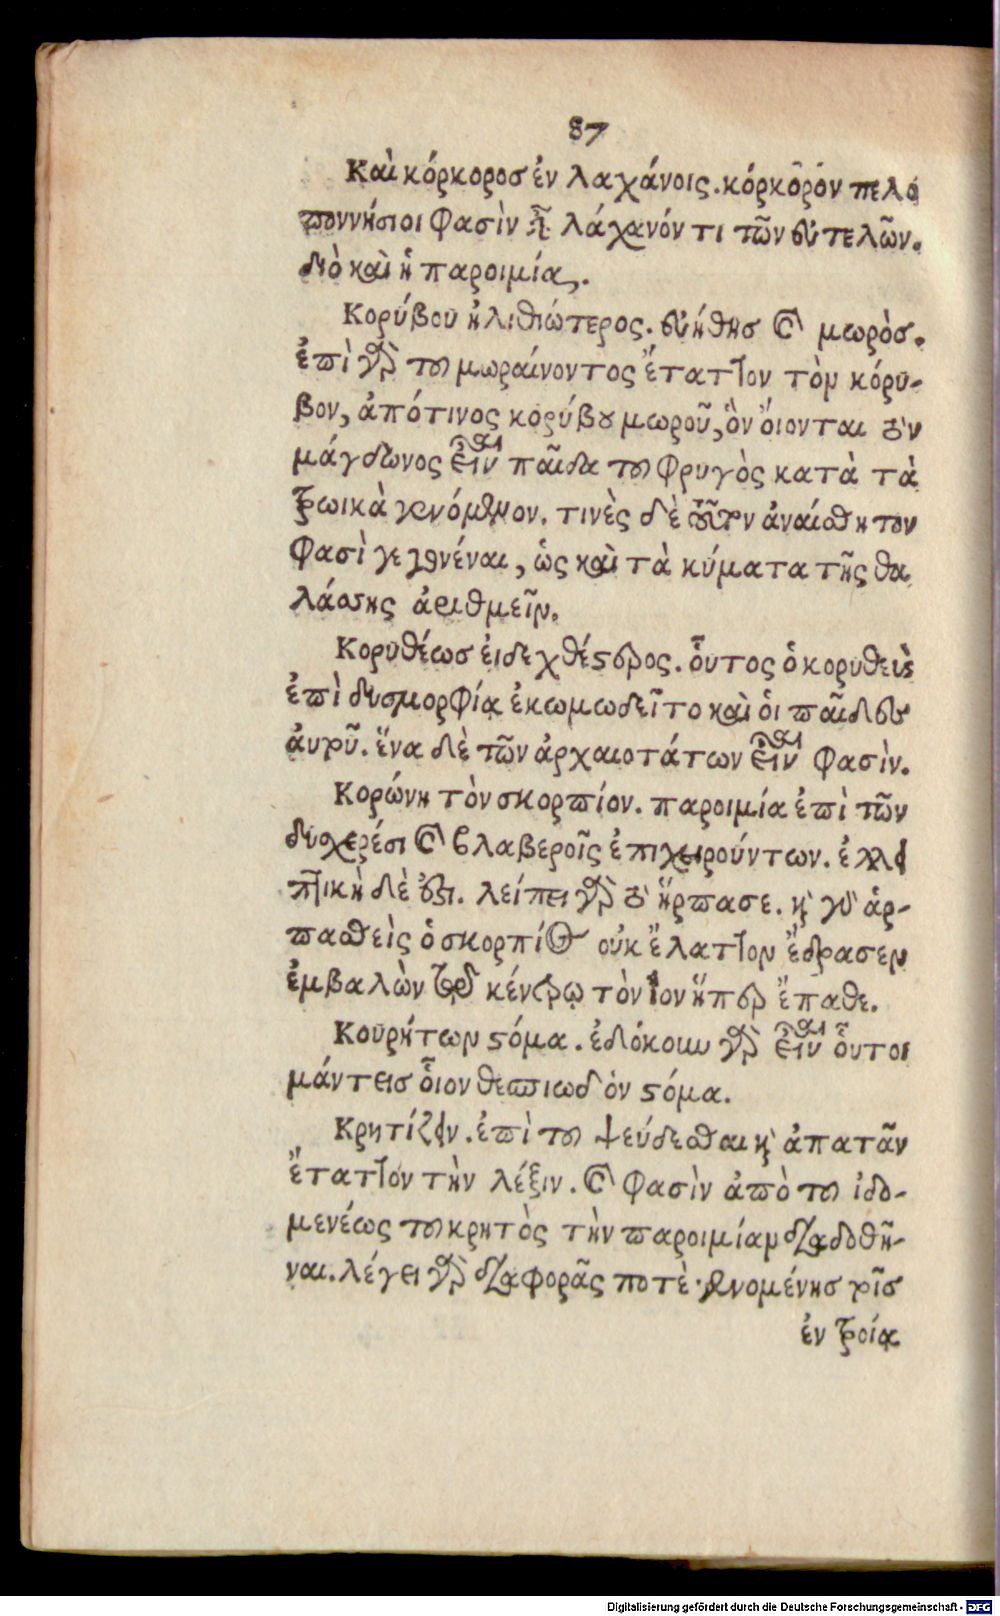 87
Καὶ κόρκοροσ ἐν λαχάνοις. κόρκορον πελο
ποννήσιοι φασὶν ἢ λάχανόν τι τῶν εὐτελῶν.
διὸ καὶ ἡ παροιμία.
Κορύβου ἠλιθιώτερος. εὐήθησ καὶ μωρὸσ.
ἐπὶ γὰρ του μωραίνοντος ἔταττον τὸν κόρυ-
βον, ἀπότινος κορύβου μωροῦ, ὃν ὄιονται
μάγδωνος εἶναι παῖδα του φρυγὸς κατὰ τὰ
τρωικὰ γενόμενον. τινὲς δὲ οὕτων ἀναίσθητον
φασὶ γεγονέναι, ὡς καὶ τὰ κύματα τῆς θα
λάσσης ἀριθμεῖν.
Κορυθέωσ ἐιδεχθέστερος. οὗτος ὁ κορυθεὺς
ἐπὶ δυσμορφία ἐκωμωδεῖτο καὶ ὁι παῖδες
ἀυτοῦ. ἕνα δὲ τῶν ἀρχαιοτάτων εἶναι φασὶν.
Κορώνη τὸν σκορπίον. παροιμία ἐπὶ τῶν
δυσχερέσι καὶ βλαβεροῖς ἐπιχειρούντων. ἐλλει
πτικὴ δὲ ἐστι. λείπει γὰρ τὸ ἥρπασε. καὶ γὰρ ἁρ-
πασθεὶς ὁ σκορπίος οὐκ ἔλαττον ἔδρασεν
ἐμβαλὼν τῷ κέντρῳ τὸν ἰον ἤπερ ἔπαθε.
Κουρήτων στόμα. ἐδόκουν γὰρ εἶναι οὗτοι
μάντεισ οἷον θεσπιωδὸν στόμα.
Κρητίζειν. ἐπὶ του ψεύδεσθαι καὶ ἀπατᾶν
ἔταττον τὴν λέξιν. καὶ φασὶν ἀπὸ του ἰδο-
μενέως του κρητὸς τὴν παροιμίαν διαδοθῆ-
ναι. λέγει γὰρ διαφορᾶς ποτὲ γενομένησ τοῖσ
ἐν τροία
Digitalisierung gefördert durch die Deutsche Forschungsgemeinschaft - DFG